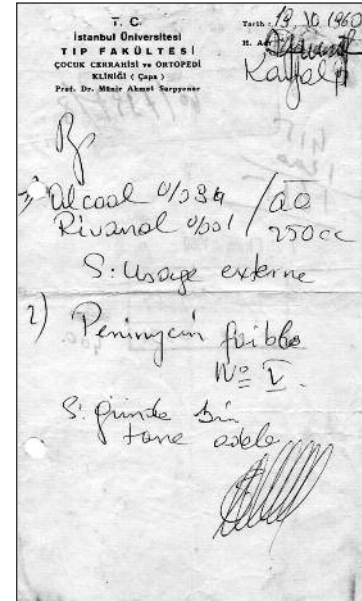 T. C.
İstanbul Üniversitesi
TIP FAKÜLTESİ
ÇOCUK CERRAHİSİ ve ORTOPEDİ
KLİNİĞİ ( Çapa )
Prof. Dr. Münir Ahmet Sarpyener
Tarih : 19.10.1960
H. Adı
Kayalp
Rp
Alcool /āā
Rivanol 250cc
S: Usage externe
2) Peninycin
No V.
S: günde bir
tane adele